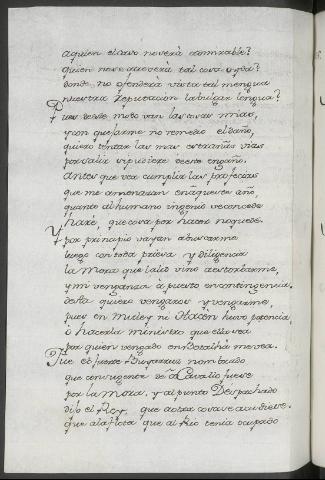 aquien el caso no verà admirable?
quien no se atreverà tal cosa oyda?
donde no ofenderá vista tal mengua
nuestra reputacion la vulgar lengua?
Pues deste modo van las cosas mias,
y con quejarme no remedio el daño,
quiero tentar las mas estrañas vias
por salir si pudiere deste engaño.
Antes que vea cumplir las profecias
que me amenazan en aqueste año,
quanto al humano ingenio se concede
haré, que cosa por hacer no quede.
Y por principio vayan a buscarme
luego con toda priesa y diligencia
la Mora que la lid vino a estorbarme,
y mi venganza à puesto en contingencia,
desta quiero vengaros y vengarme,
pues en Muley ni Hacèn huvo potencia,
ò hacerla ministro que ella sea
por quien vengado en Batalha me vea.
Fue el fuerte nombrado
que con gente de Cavallo fuese
por la Mora, y al punto Despachado
dijo el Rey, que a otra cosa se acudiese.
que a la flota que al Rio tenia ocupado